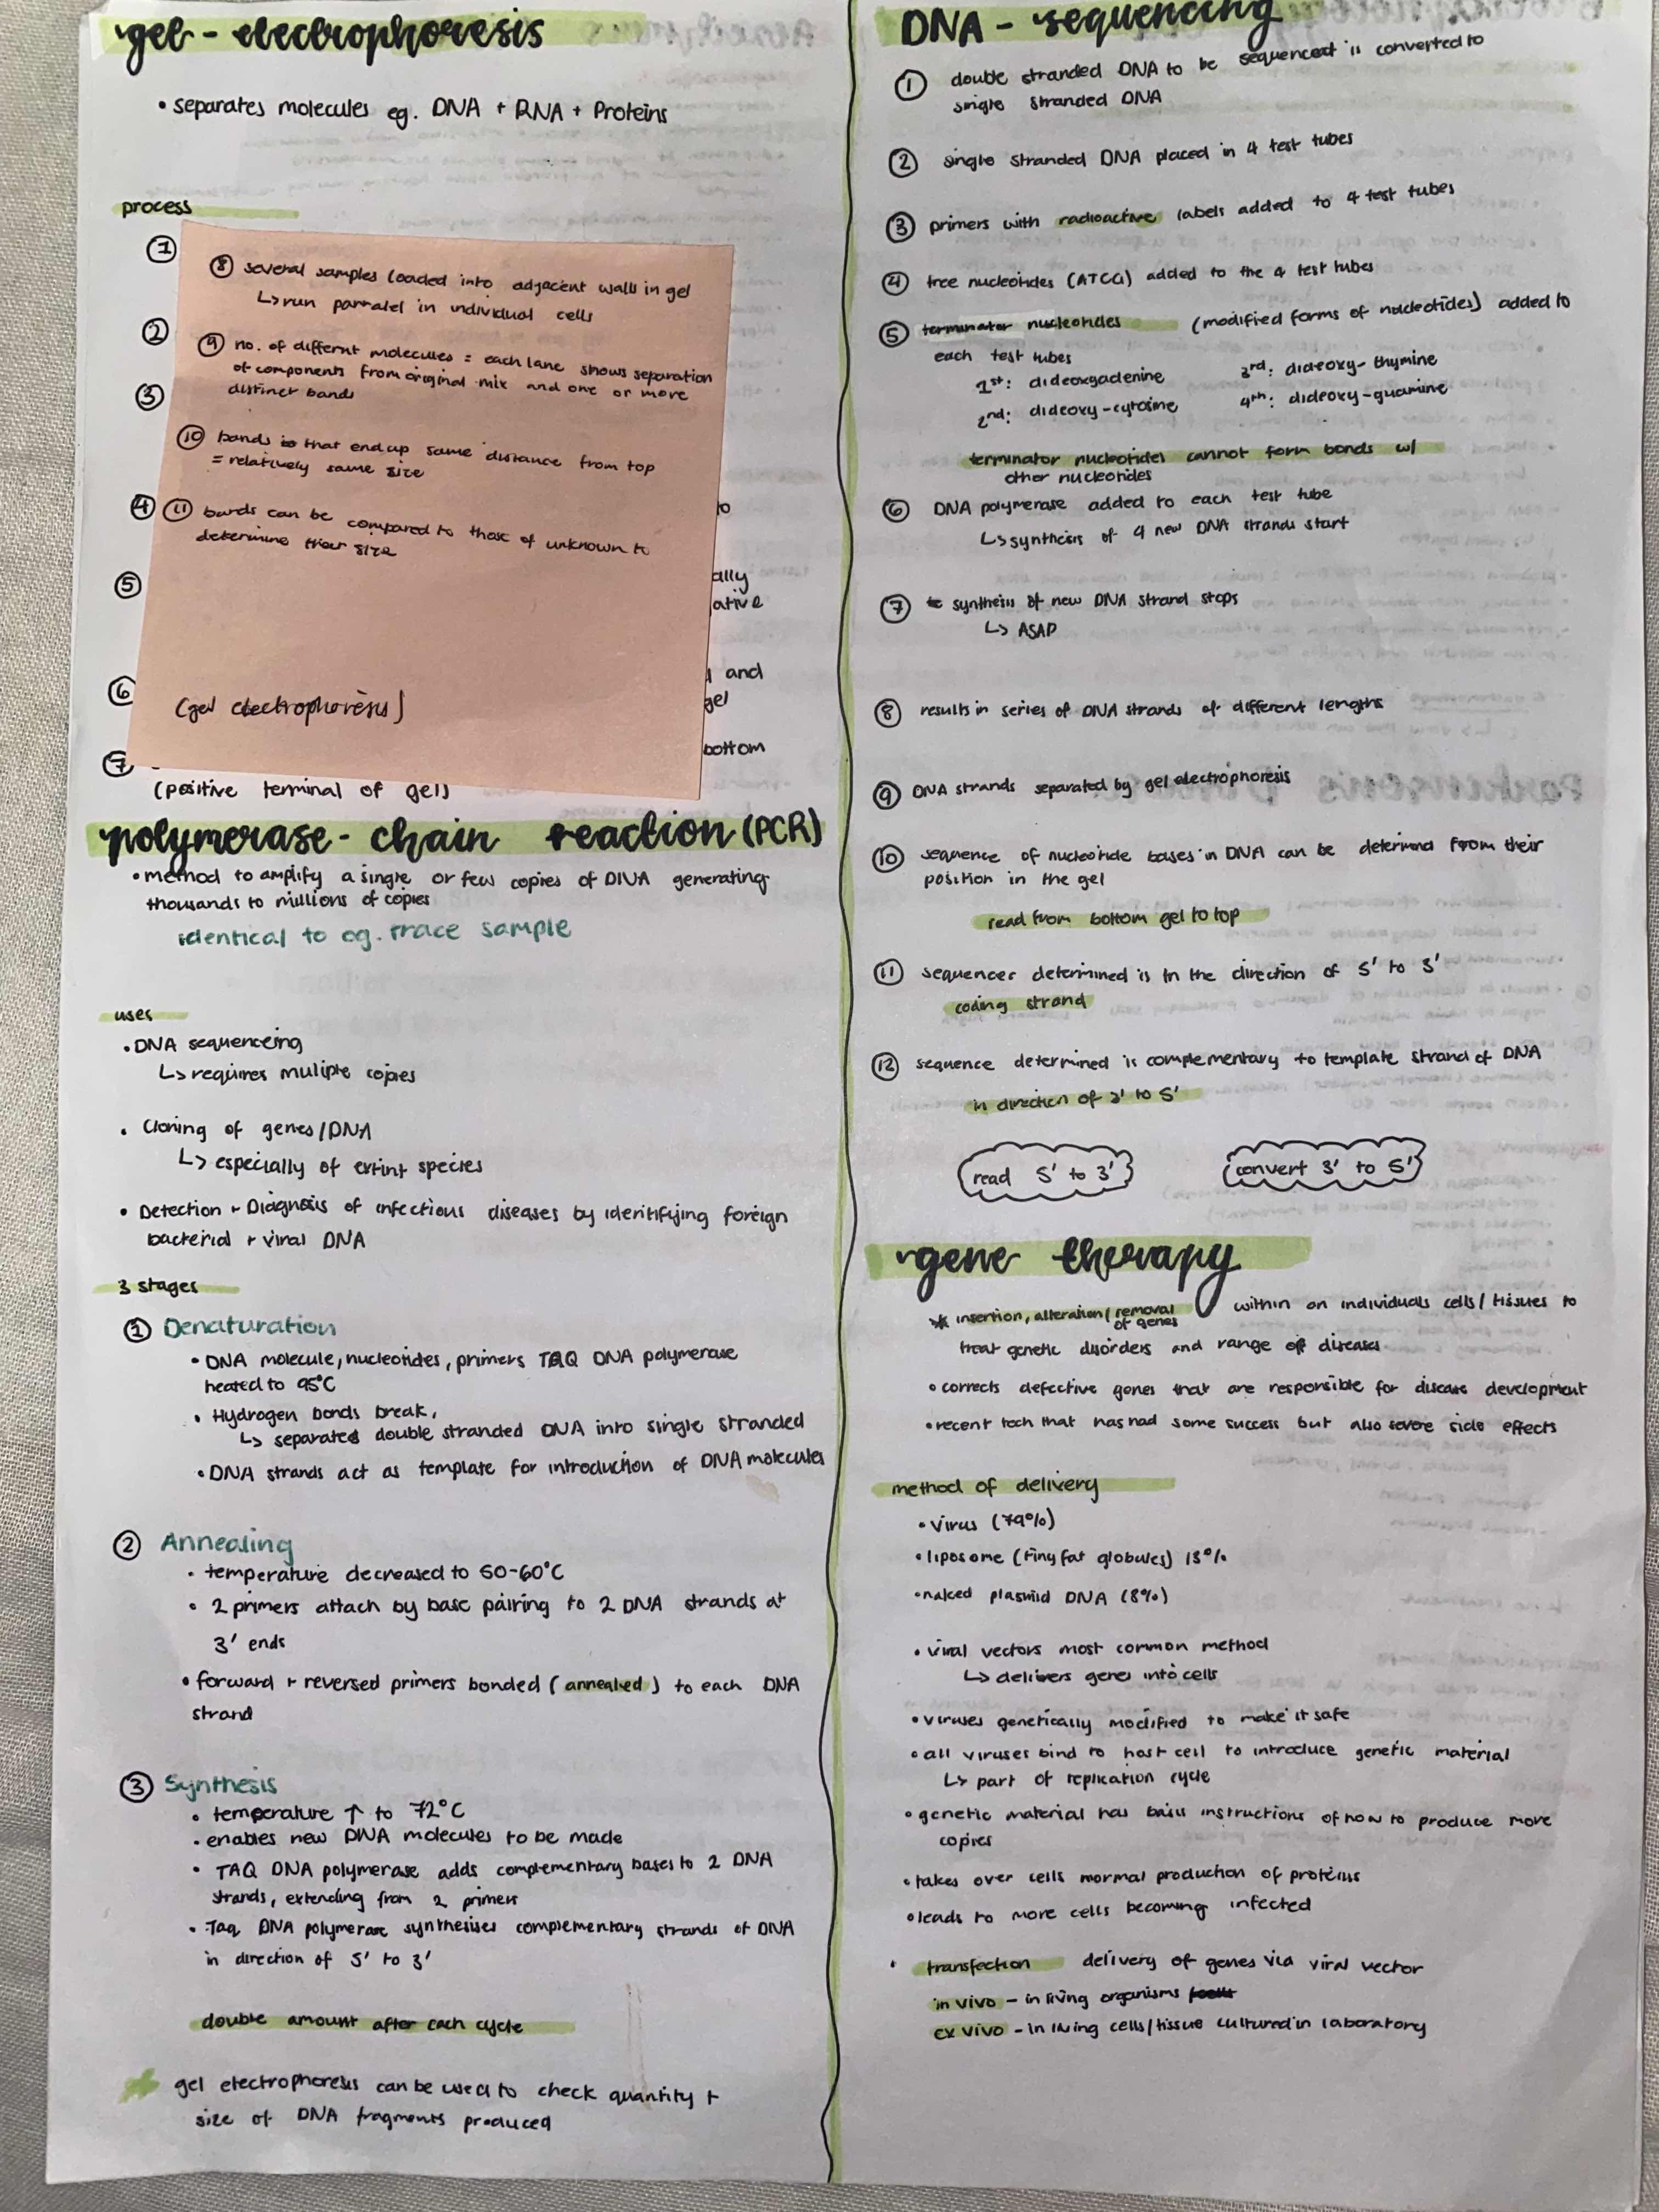 gel-electrophoresis
• separates molecules eg. DNA + RNA + Proteins
process
①
②
③
④
⑤
⑥
⑦
⑧ several samples loaded into adjacent walls in gel
↳ run parralel in individual cells
⑨ no. of differnt molecules = each lane shows separation
of components from original mix and one or more
distinct bands
⑩ bands is that end up same distance from top
= relatively same size
⑪ bands can be compared to those of unknown to
determine their size
(gel electrophoresis)
to
ally
ative
and
gel
bottom
(positive terminal of gel)
polymerase-chain reaction (PCR)
• method to amplify a single or few copies of DNA generating
thousands to millions of copies
identical to og. trace sample
uses
• DNA sequenceing
↳ requires muliple copies
• Cloning of genes/DNA
↳ especially of extint species
• Detection + Diagnosis of infectious diseases by identifying foreign
bacterial + viral DNA
3 stages
① Denaturation
• DNA molecule, nucleotides, primers TAQ DNA polymerase
heated to 95°C
• Hydrogen bonds break,
↳ separates double stranded DNA into single stranded
• DNA strands act as template for introduction of DNA molecules
② Annealing
• temperature decreased to 50-60°C
• 2 primers attach by base pairing to 2 DNA strands at
3' ends
• forward + reversed primers bonded (annealed) to each DNA
strand
③ Synthesis
• temperature ↑ to 72°C
• enables new DNA molecules to be made
• TAQ DNA polymerase adds complementary bases to 2 DNA
strands, extending from 2 primers
• Taq DNA polymerase synthesises complementary strands of DNA
in direction of 5' to 3'
double amount after each cycle
gel electrophoresis can be used to check quantity +
size of DNA fragments produced
DNA-sequencing
① double stranded DNA to be sequenced is converted to
single stranded DNA
② single stranded DNA placed in 4 test tubes
③ primers with radioactive labels added to 4 test tubes
④ free nucleotides (ATCG) added to the 4 test tubes
⑤ terminator nucleotides (modified forms of nucleotides) added to
each test tubes
1st: dideoxyadenine 3rd: dideoxy-thymine
2nd: dideoxy-cytosine 4th: dideoxy-guanine
terminator nucleotides cannot form bonds w/
other nucleotides
⑥ DNA polymerase added to each test tube
↳ synthesis of 4 new DNA strands start
⑦ synthesis of new DNA strand stops
↳ ASAP
⑧ results in series of DNA strands of different lengths
⑨ DNA strands separated by gel electrophoresis
⑩ sequence of nucleotide bases in DNA can be determind from their
position in the gel
read from bottom gel to top
⑪ sequences determined is in the direction of 5' to 3'
coding strand
⑫ sequence determined is complementary to template strand of DNA
in direction of 3' to 5'
read 5' to 3' convert 3' to 5'
gene therapy
* insertion, alteration/removal of genes within an individuals cells/tissues to
treat genetic disorders and range of diseases
• corrects defective genes that are responsible for disease development
• recent tech that has had some success but also severe side effects
method of delivery
• virus (79%)
• liposome (tiny fat globules) 13%
• naked plasmid DNA (8%)
• viral vectors most common method
↳ delivers genes into cells
• viruses genetically modified to make it safe
• all viruses bind to host cell to introduce genetic material
↳ part of replication cycle
• genetic material has basic instructions of how to produce more
copies
• takes over cells normal production of proteins
• leads to more cells becoming infected
• transfection delivery of genes via viral vector
in vivo - in living organisms
ex vivo - in living cells/tissue cultured in laboratory